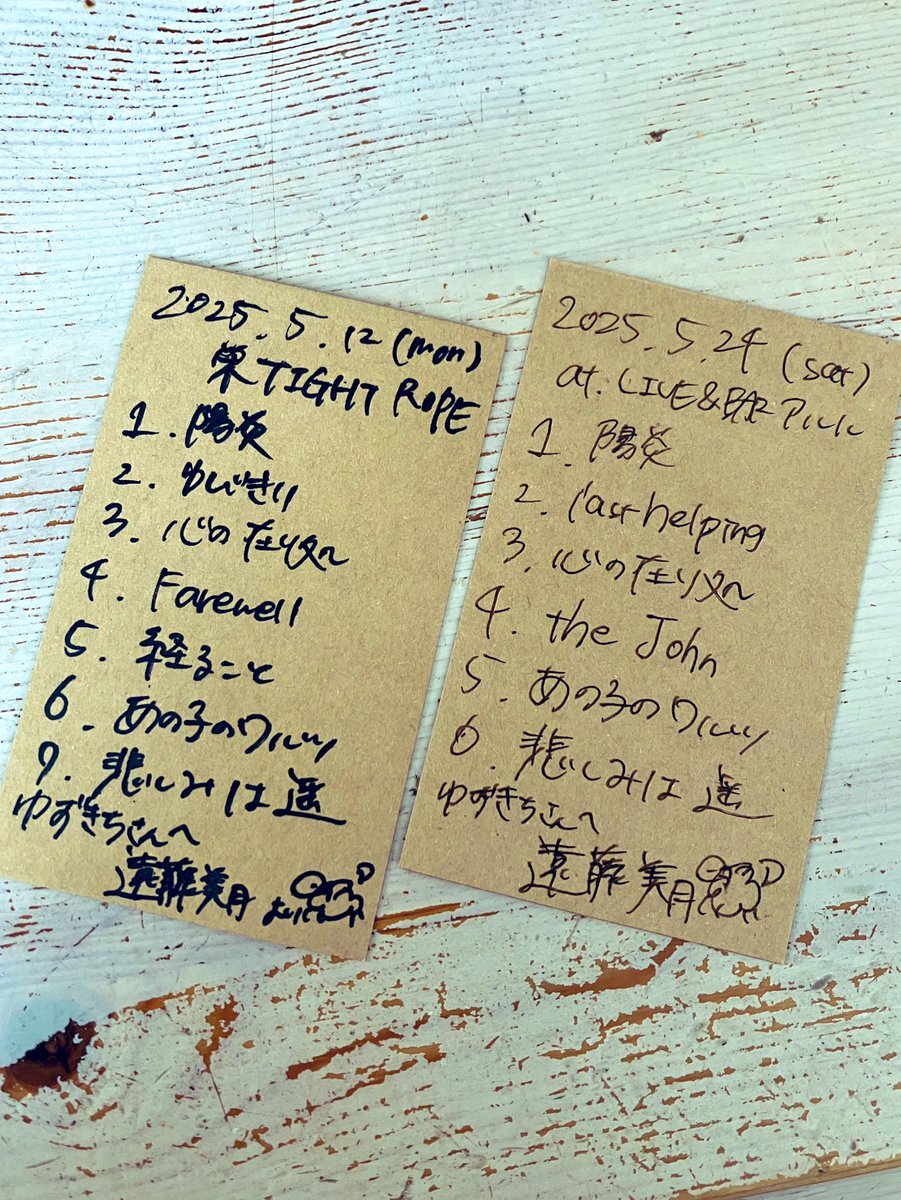 2025.5.12 (mon)
栄TIGHT ROPE
1. 陽炎
2. ゆびきり
3. 心の在り処へ
4. Farewell
5. 経ること
6. あの子のワルツ
7. 悲しみは遥
ゆずきちさんへ
遠藤美月
2025.5.24 (sat)
at. LIVE&BAR アルル
1. 陽炎
2. last helping
3. 心の在り処へ
4. the John
5. あの子のワルツ
6. 悲しみは遥
ゆずきちさんへ
遠藤美月